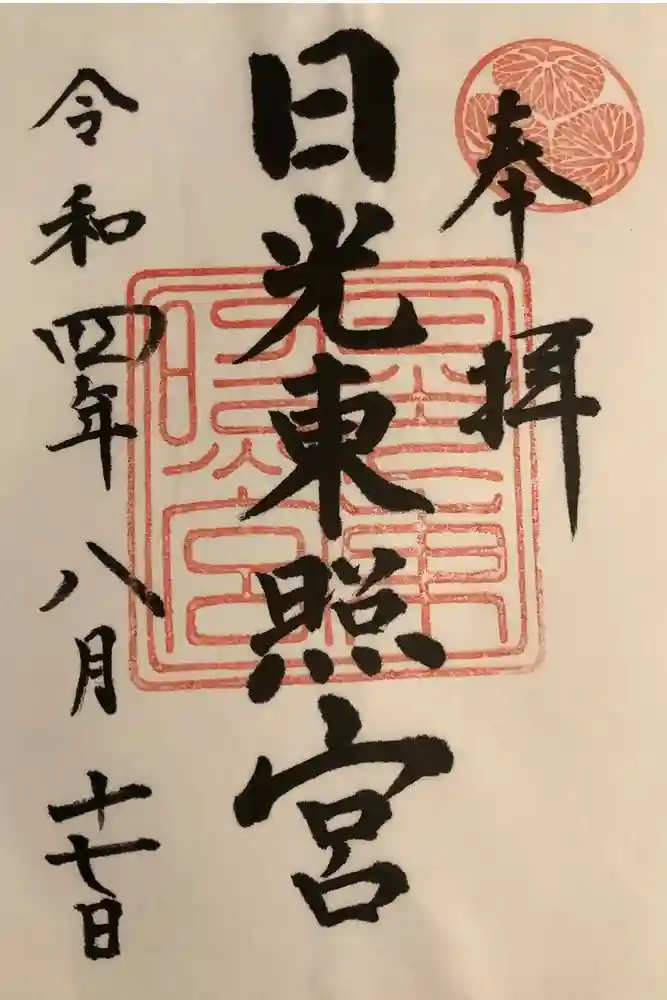 奉拝
日光東照宮
令和四年八月十七日